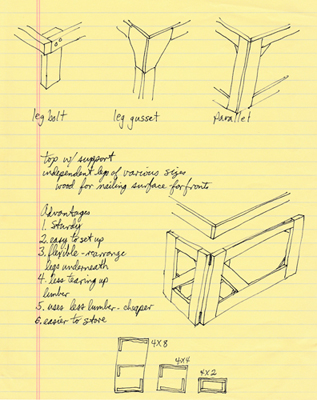 leg bolt
leg gusset
parallel
top w/ support
independent legs of various sizes
wood for nailing surface for fronts
Advantages
1. sturdy
2. easy to set up
3. flexible - rearrange
legs underneath
4. less tearing up
lumber
5. uses less lumber - cheaper
6. easier to store
4x8
4x4
4x2